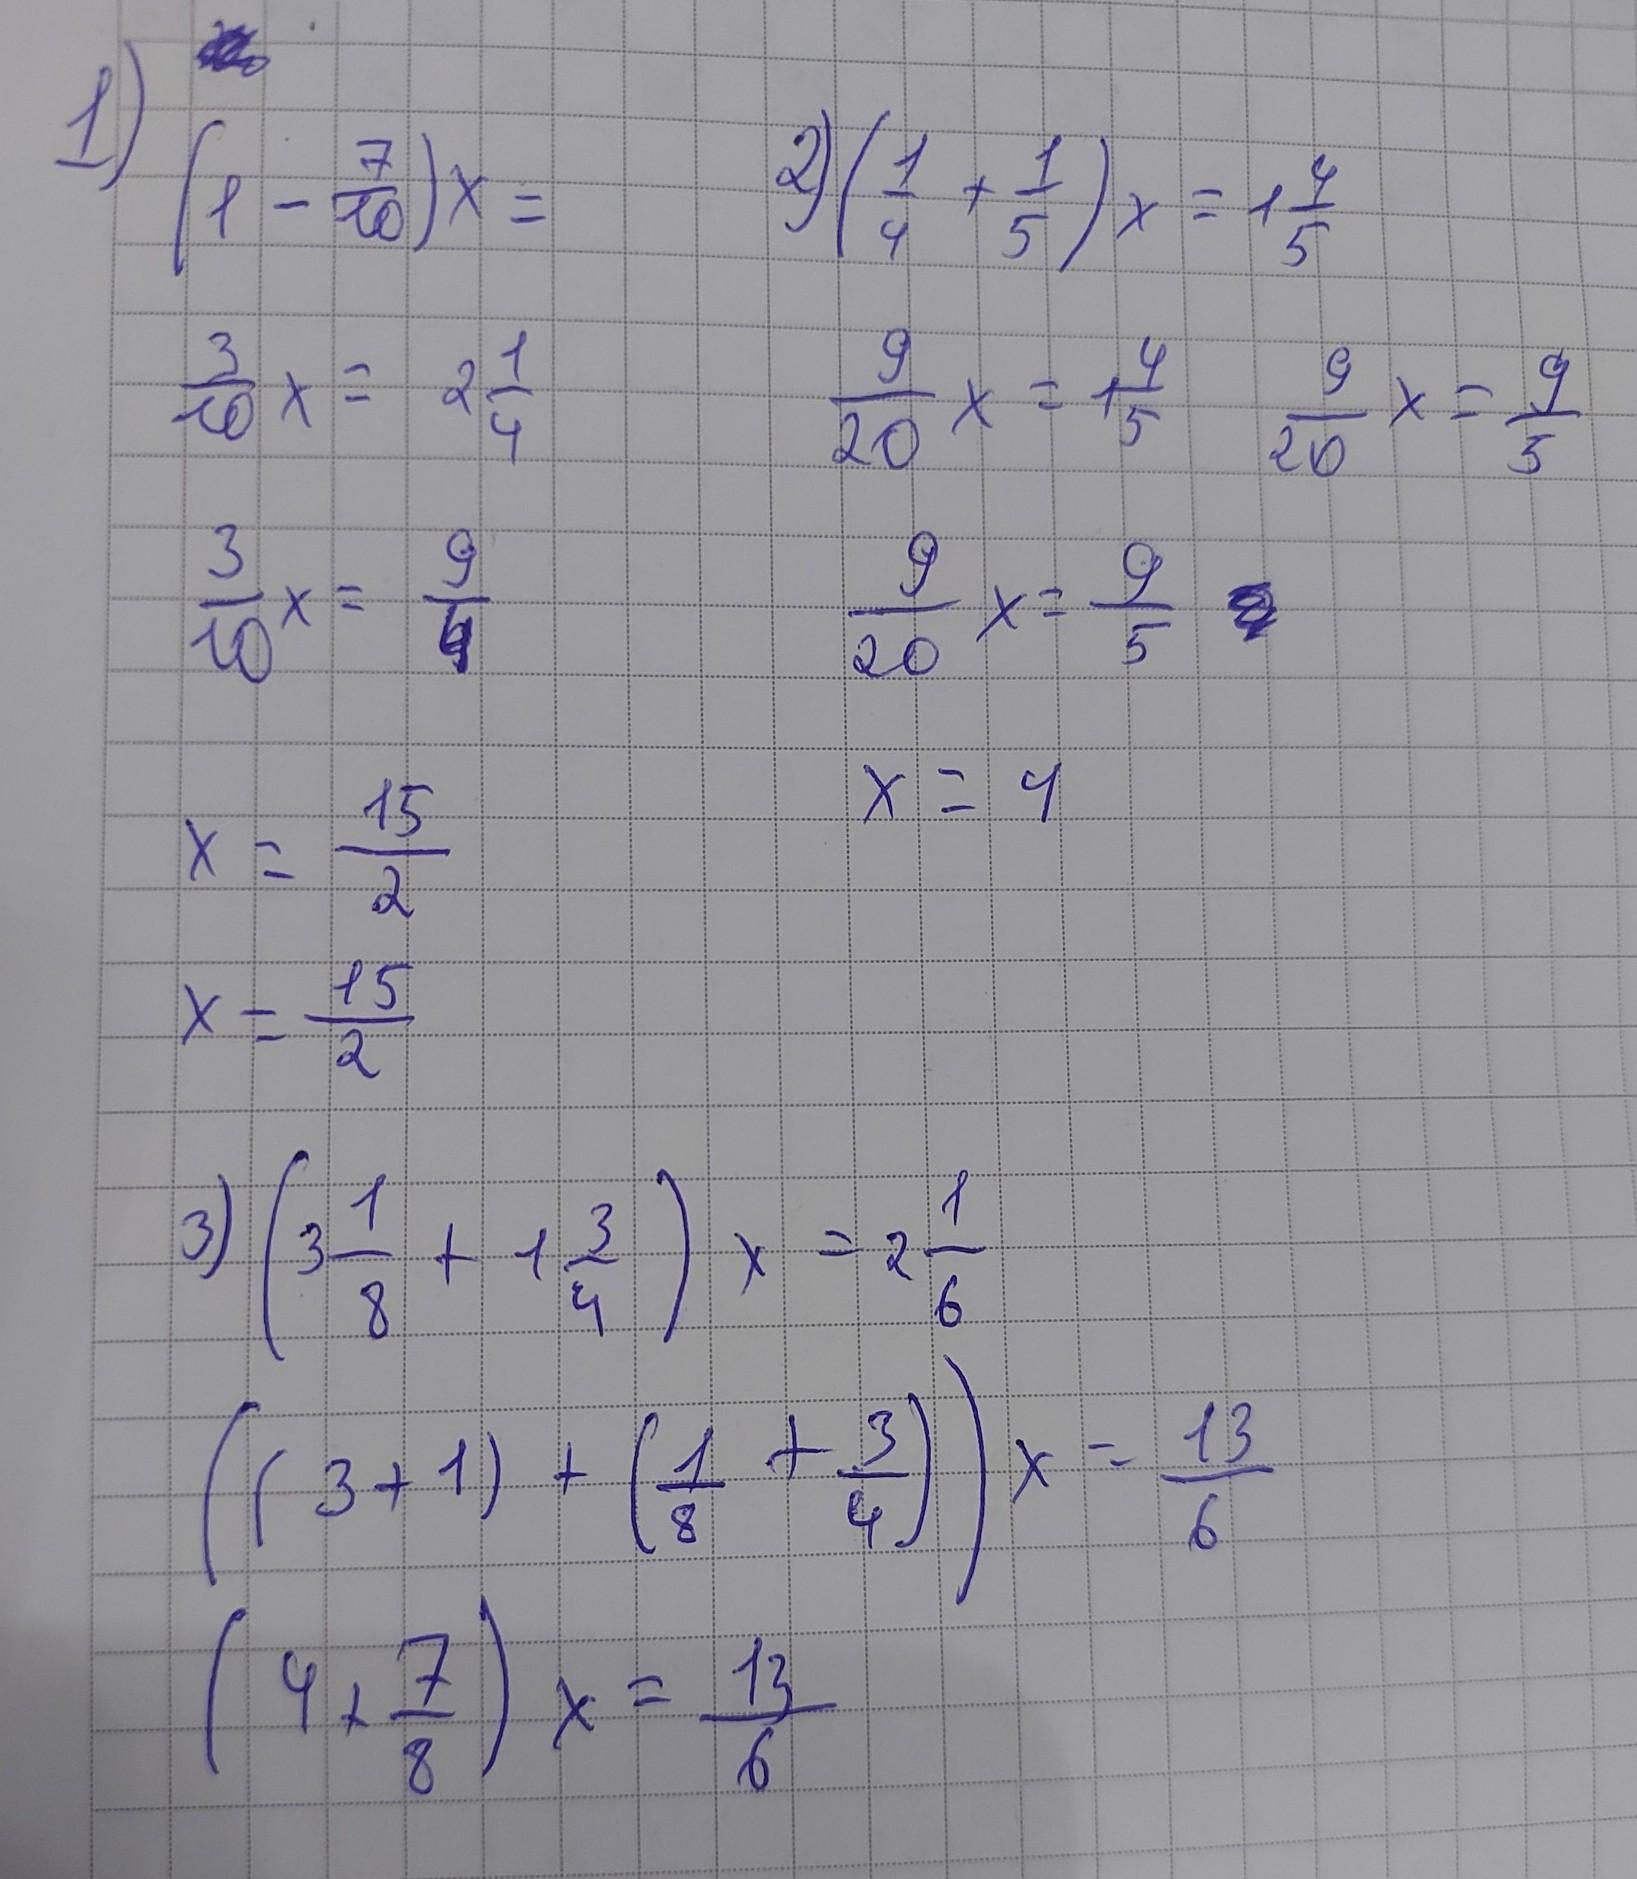 1)
(1 - 7/10)x =
3/10 x = 2 1/4
3/10 x = 9/4
x = 15/2
x = 15/2
2) (1/4 + 1/5) x = 1 4/5
9/20 x = 1 4/5    9/20 x = 9/5
9/20 x = 9/5
x = 4
3) (3 1/8 + 1 3/4) x = 2 1/6
((3 + 1) + (1/8 + 3/4)) x = 13/6
(4 + 7/8) x = 13/6